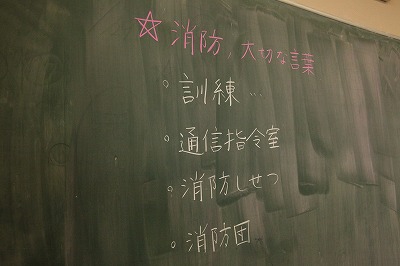 ☆消防、大切な言葉
。訓練…
。通信指令室
。消防しせつ
。消防団